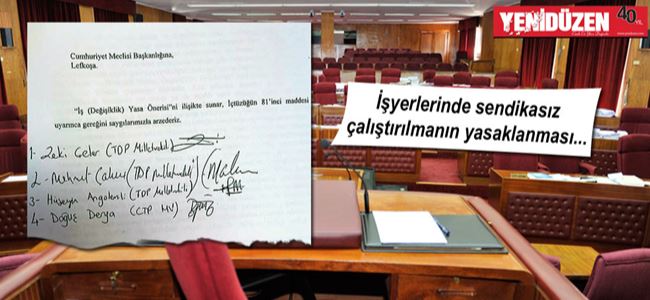 Cumhuriyet Meclisi Başkanlığına,
Lefkoşa.
"İş (Değişiklik) Yasa Önerisi"ni ilişikte sunar, İçtüzüğün 81'inci maddesi
uyarınca gereğini saygılarımızla arzederiz.
1- Zeki Çeler (TDP Milletvekili)
2- Mehmet Çakıcı (TDP Milletvekili)
3- Hüseyin Angolemli (TDP Milletvekili)
4- Doğuş Derya (CTP MV)
YENİDÜZEN
40 YIL
İşyerlerinde sendikasız
çalıştırılmanın yasaklanması...